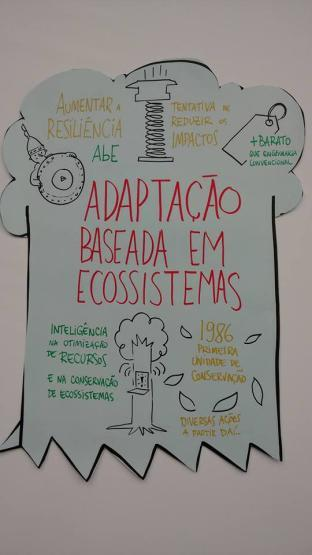 AUMENTAR A
RESILIÊNCIA
AbE
TENTATIVA DE
REDUZIR OS
IMPACTOS
+ BARATO
QUE ENGENHARIA
CONVENCIONAL
ADAPTAÇÃO
BASEADA EM
ECOSSISTEMAS
INTELIGÊNCIA
NA OTIMIZAÇÃO
DE RECURSOS
E NA CONSERVAÇÃO
DE ECOSSISTEMAS
1986
PRIMEIRA
UNIDADE DE
CONSERVAÇÃO
DIVERSAS AÇÕES
A PARTIR DAÍ...